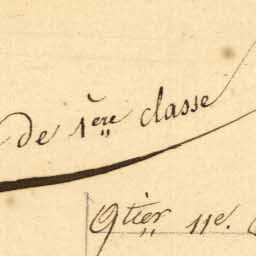 de 1ère classe
Qtier 11e.